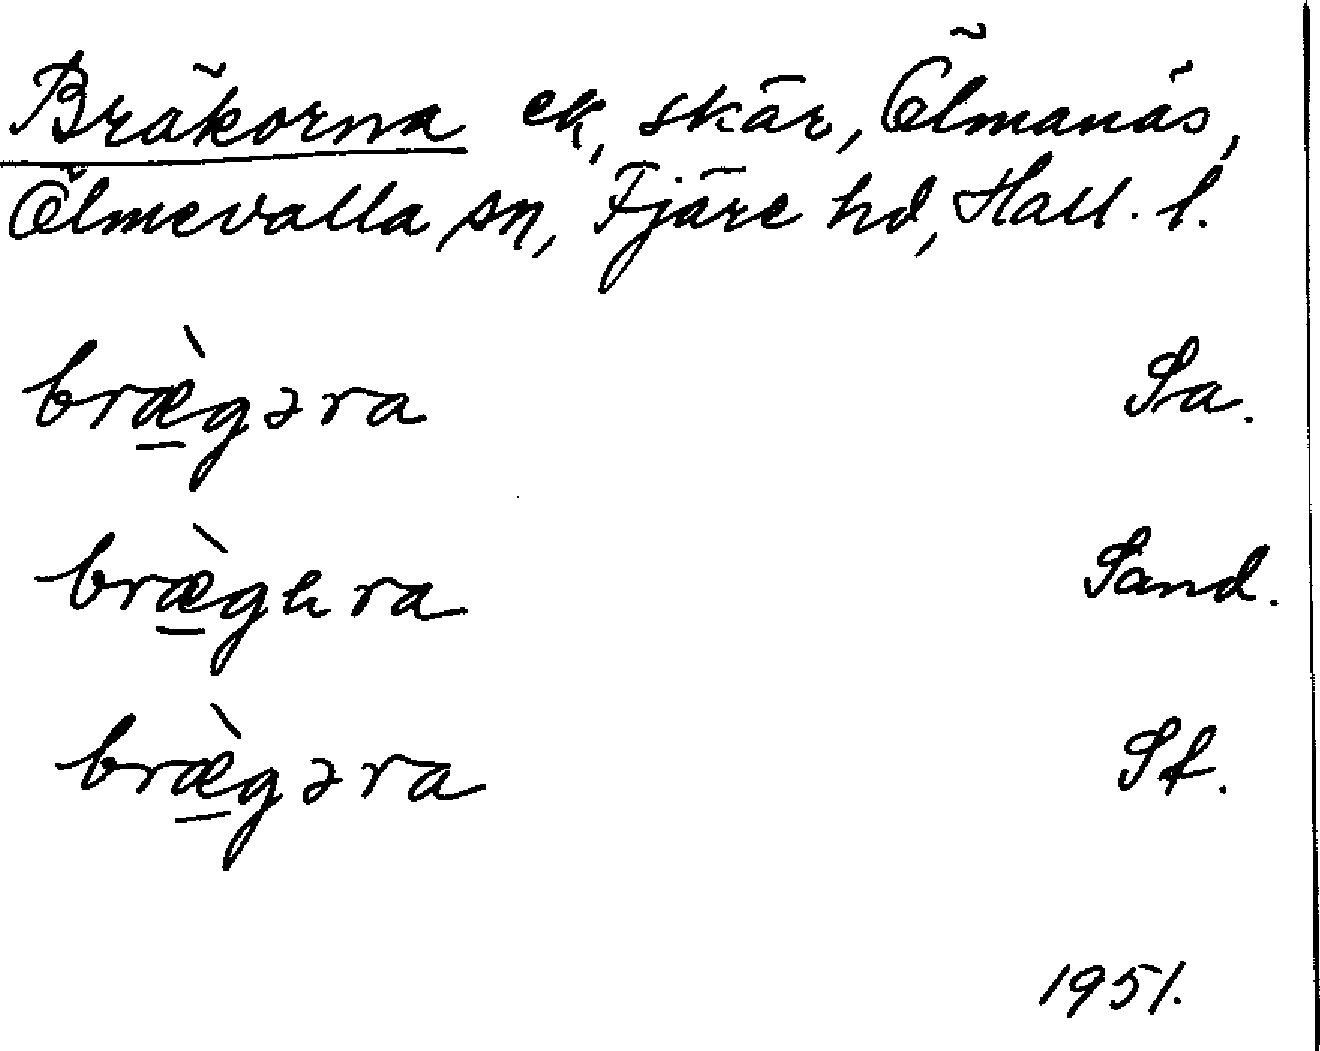 Bräkorna ek, skär, Ölmanäs,
Ölmevalla sn, Fjäre hd, Hall. l.
bræ̀gəra Sa.
Sand.
bræ̀gəra Sf.
1951.